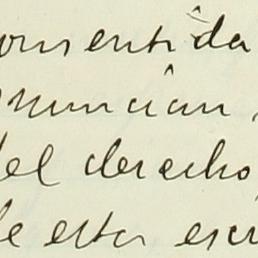 consentida
enuncian,
del derecho,
de esta escr